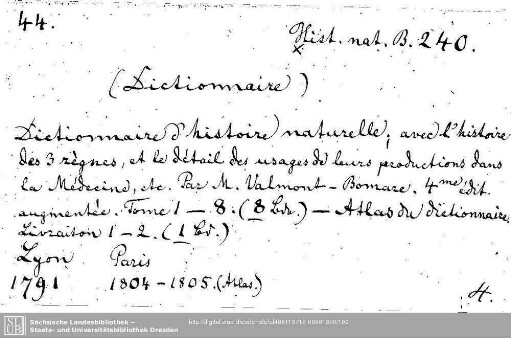 44.
Hist. nat. B. 240.
(Dictionnaire)
Dictionnaire d'histoire naturelle, avec l'histoire
des 3 règnes, et le détail des usages de leurs productions dans
la Médecine, etc. Par M. Valmont-Bomare. 4me édit.
augmentée. Tome 1-8. (8 Bde.) - Atlas du dictionnaire.
Livraison 1-2. (1 Bd.)
Lyon Paris
1791 1804-1805. (Atlas.)
H.
SLUB
Sächsische Landesbibliothek –
Staats- und Universitätsbibliothek Dresden